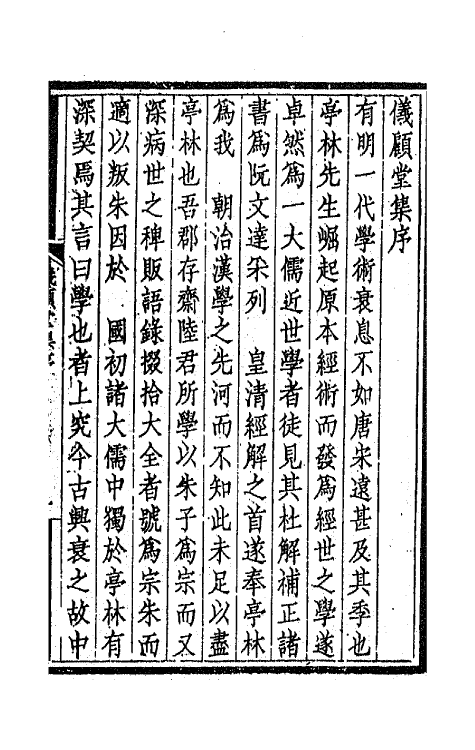 儀顧堂集序
有明一代學術衰息不如唐宋遠甚及其季也
亭林先生崛起原本經術而發爲經世之學遂
卓然爲一大儒近世學者徒見其杜解補正諸
書爲阮文達采列　皇清經解之首遂奉亭林
爲我　朝治漢學之先河而不知此未足以盡
亭林也吾郡存齋陸君所學以朱子爲宗而又
深病世之稗販語錄掇拾大全者號爲宗朱而
適以叛朱因於　國初諸大儒中獨於亭林有
深契焉其言曰學也者上究今古興衰之故中